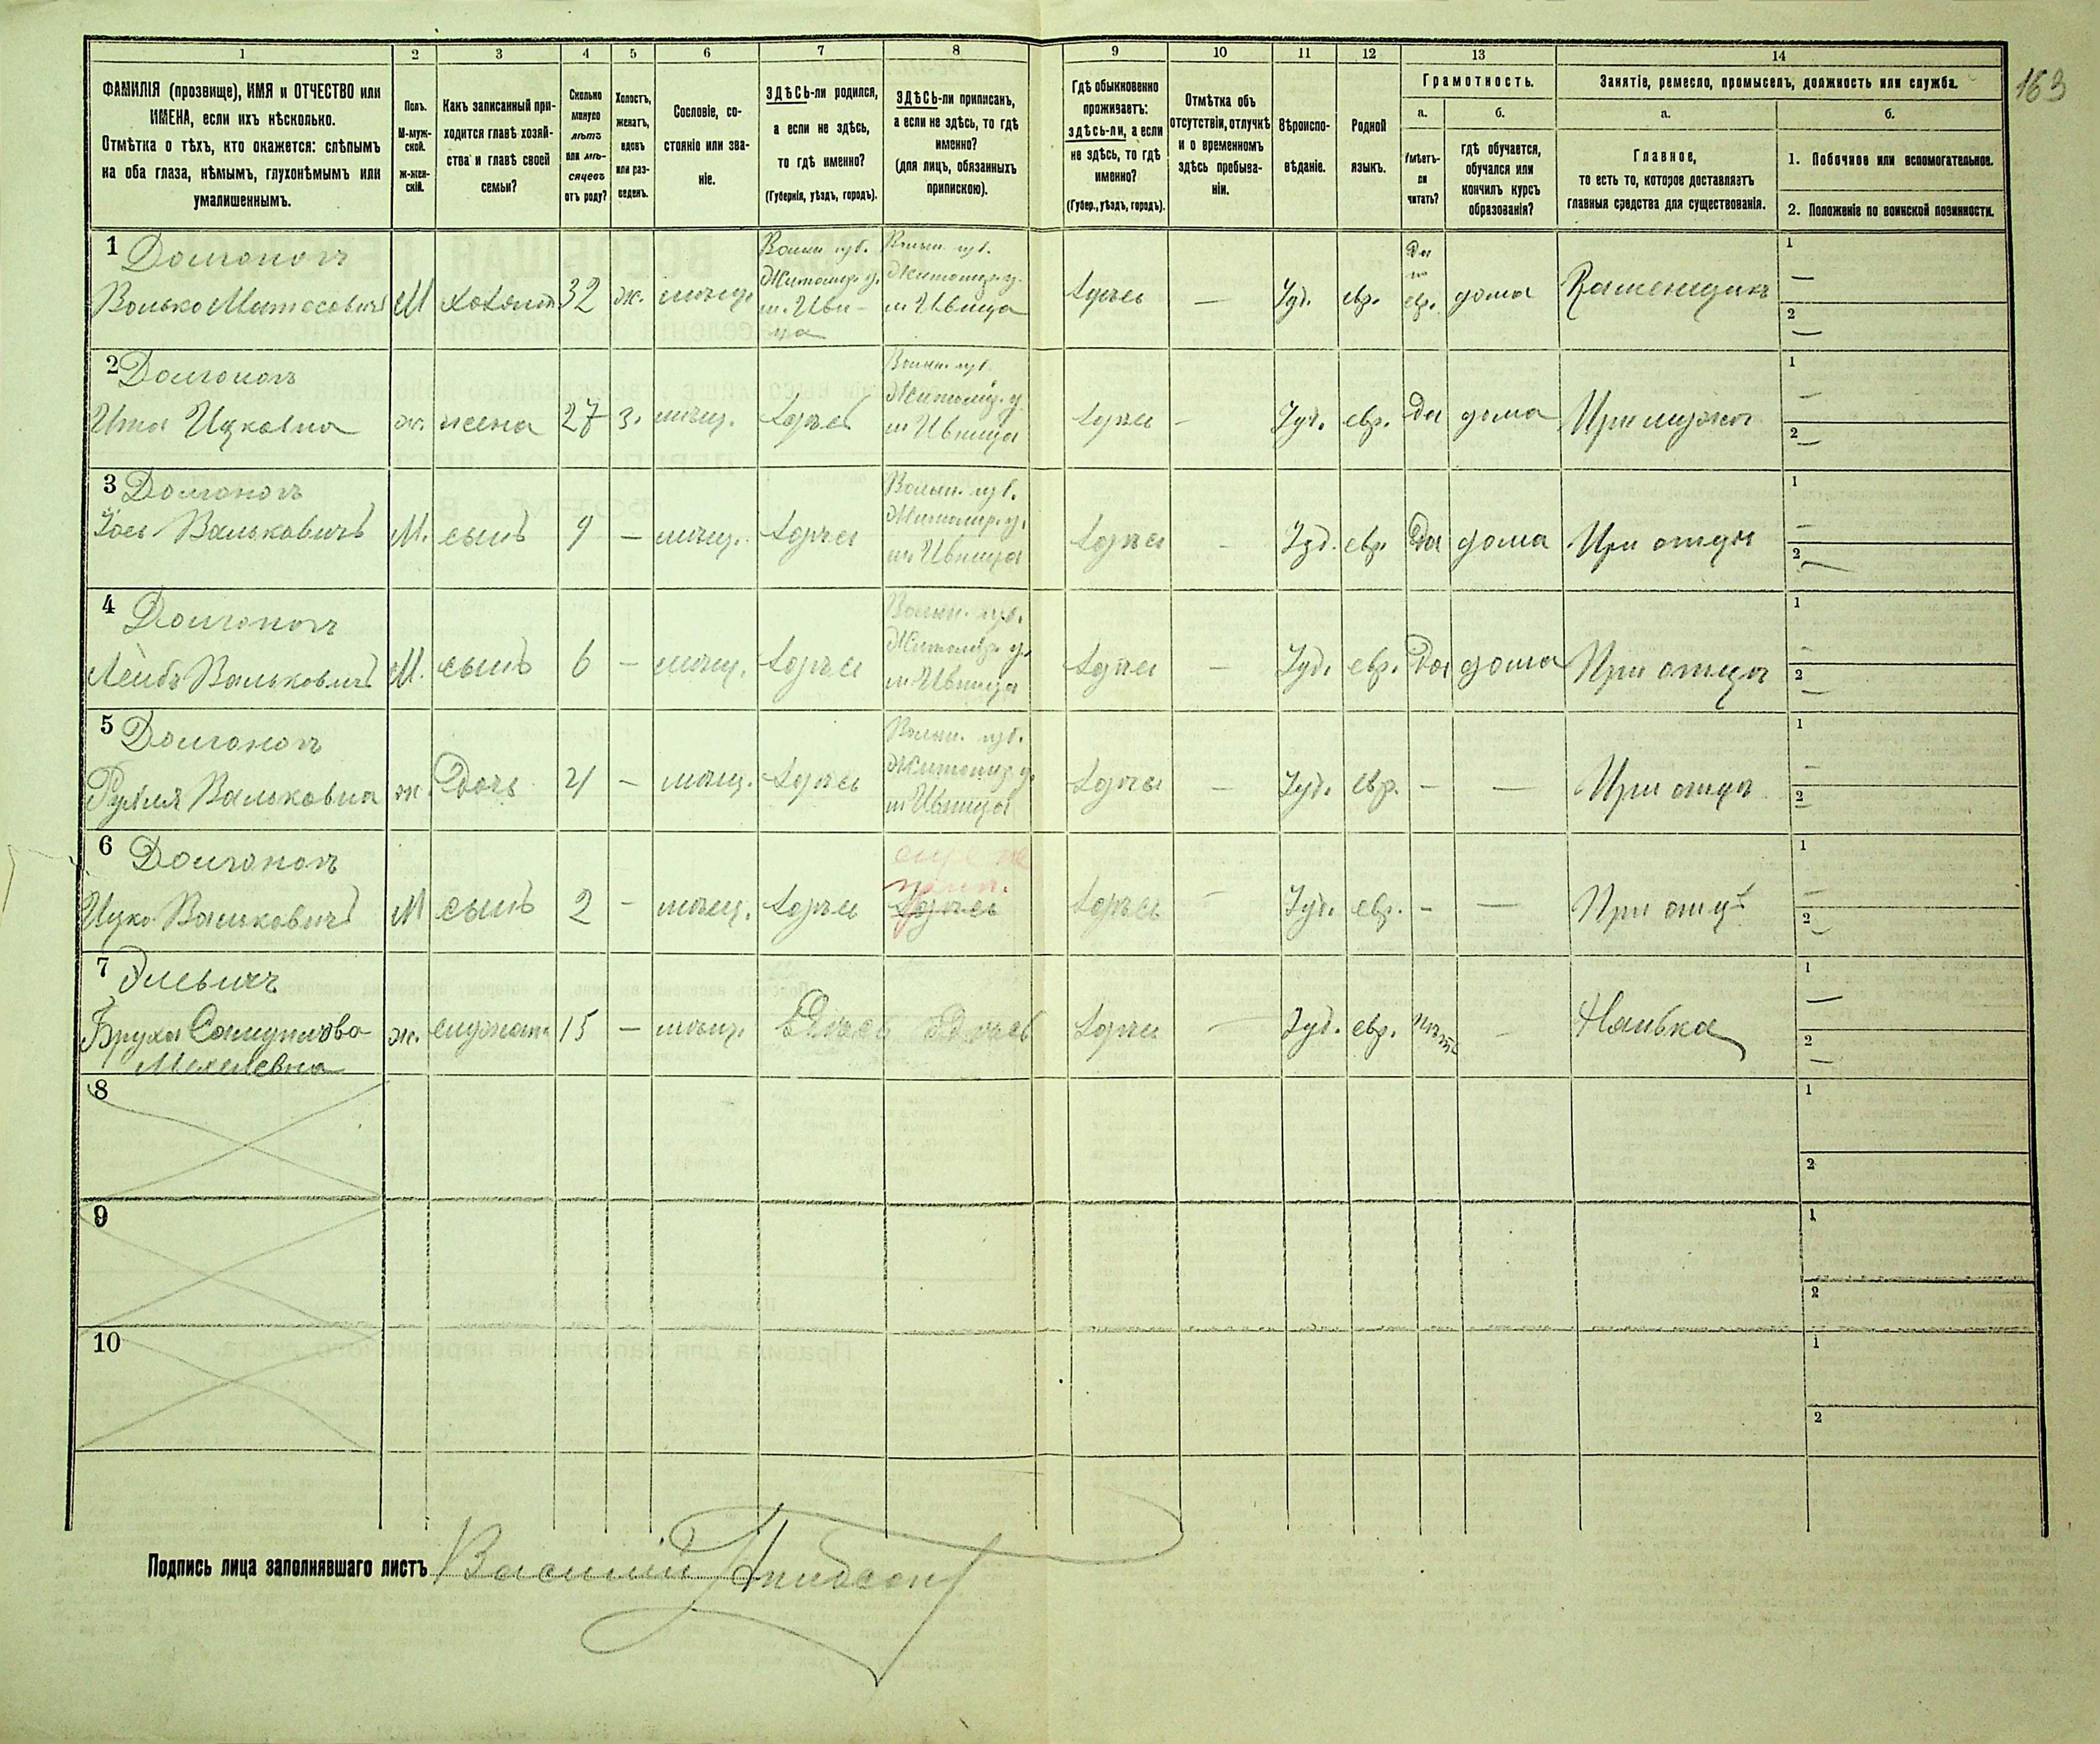 163
1 2 3 4 5 6 7 8 9 10 11 12 13 14
ФАМИЛІЯ (прозвище), ИМЯ и ОТЧЕСТВО или
ИМЕНА, если ихъ нѣсколько.
Отмѣтка о тѣхъ, кто окажется: слѣпымъ
на оба глаза, нѣмымъ, глухонѣмымъ или
умалишеннымъ.
Полъ.
М-муж-
ской.
Ж-жен-
скій.
Какъ записанный при-
ходится главѣ хозяй-
ства и главѣ своей
семьи?
Сколько
минуло
лѣтъ
или мѣ-
сяцевъ
отъ роду?
Холостъ,
женатъ,
вдовъ
или раз-
веденъ.
Сословіе, со-
стояніе или зва-
ніе.
ЗДѢСЬ-ли родился,
а если не здѣсь,
то гдѣ именно?
(Губернія, уѣздъ, городъ).
ЗДѢСЬ-ли приписанъ,
а если не здѣсь, то гдѣ
именно?
(для лицъ, обязанныхъ
припискою).
Гдѣ обыкновенно
проживаетъ:
здѣсь-ли, а если
не здѣсь, то гдѣ
именно?
(Губер., уѣздъ, городъ).
Отмѣтка объ
отсутствіи, отлучкѣ
и о временномъ
здѣсь пребыва-
ніи.
Вѣроиспо-
вѣданіе.
Родной
языкъ.
Грамотность.
а.
Умѣетъ-
ли
читать?
б.
гдѣ обучается,
обучался или
кончилъ курсъ
образованія?
Занятіе, ремесло, промыселъ, должность или служба.
а.
Главное,
то есть то, которое доставляетъ
главныя средства для существованія.
б.
1. Побочное или вспомогательное.
2. Положеніе по воинской повинности.
1
Волько М хозяинъ 32 ж. мѣщ.
Волын. губ.
Житомір. у.
м. Ивни-
ца
Волын. губ.
Житомір. у.
м. Ивница
здѣсь — Іуд. евр.
Да
по
евр. дома
1 —
2 —
2
Ицковна ж. жена 27 з. мѣщ. здѣсь
Волын. губ.
Житомір. у.
м. Ивница
здѣсь - Іуд. евр. Да дома При мужѣ
1 —
2 —
3
Вальковичъ М. сынъ 9 — мѣщ. здѣсь
Волын. губ.
Житомір. у.
м. Ивница
здѣсь - Іуд. евр. Да дома При отцѣ
1 —
2 —
4
Лейбъ Вальковичъ М. сынъ 6 — мѣщ. здѣсь
Волын. губ.
Житомір. у.
м. Ивница
здѣсь — Іуд. евр. Да дома При отцѣ
1 —
2 —
5
Вальковна ж. Дочь 4 — мѣщ. здѣсь
Волын. губ.
Житомір. у.
м. Ивница
здѣсь — Іуд. евр. — — При отцѣ
1 —
2 —
6
Ицко Вальковичъ М сынъ 2 — мѣщ. здѣсь
еще не
прип.
здѣсь
здѣсь — Іуд. евр. - — При отцѣ
1 —
2 —
7
Бруха ж. 15 — мѣщ. здѣсь здѣсь здѣсь — Іуд. евр. нѣтъ — Нянька
1 —
2 —
8
1
2
9
1
2
10
1
2
Подпись лица заполнявшаго листъ Василій